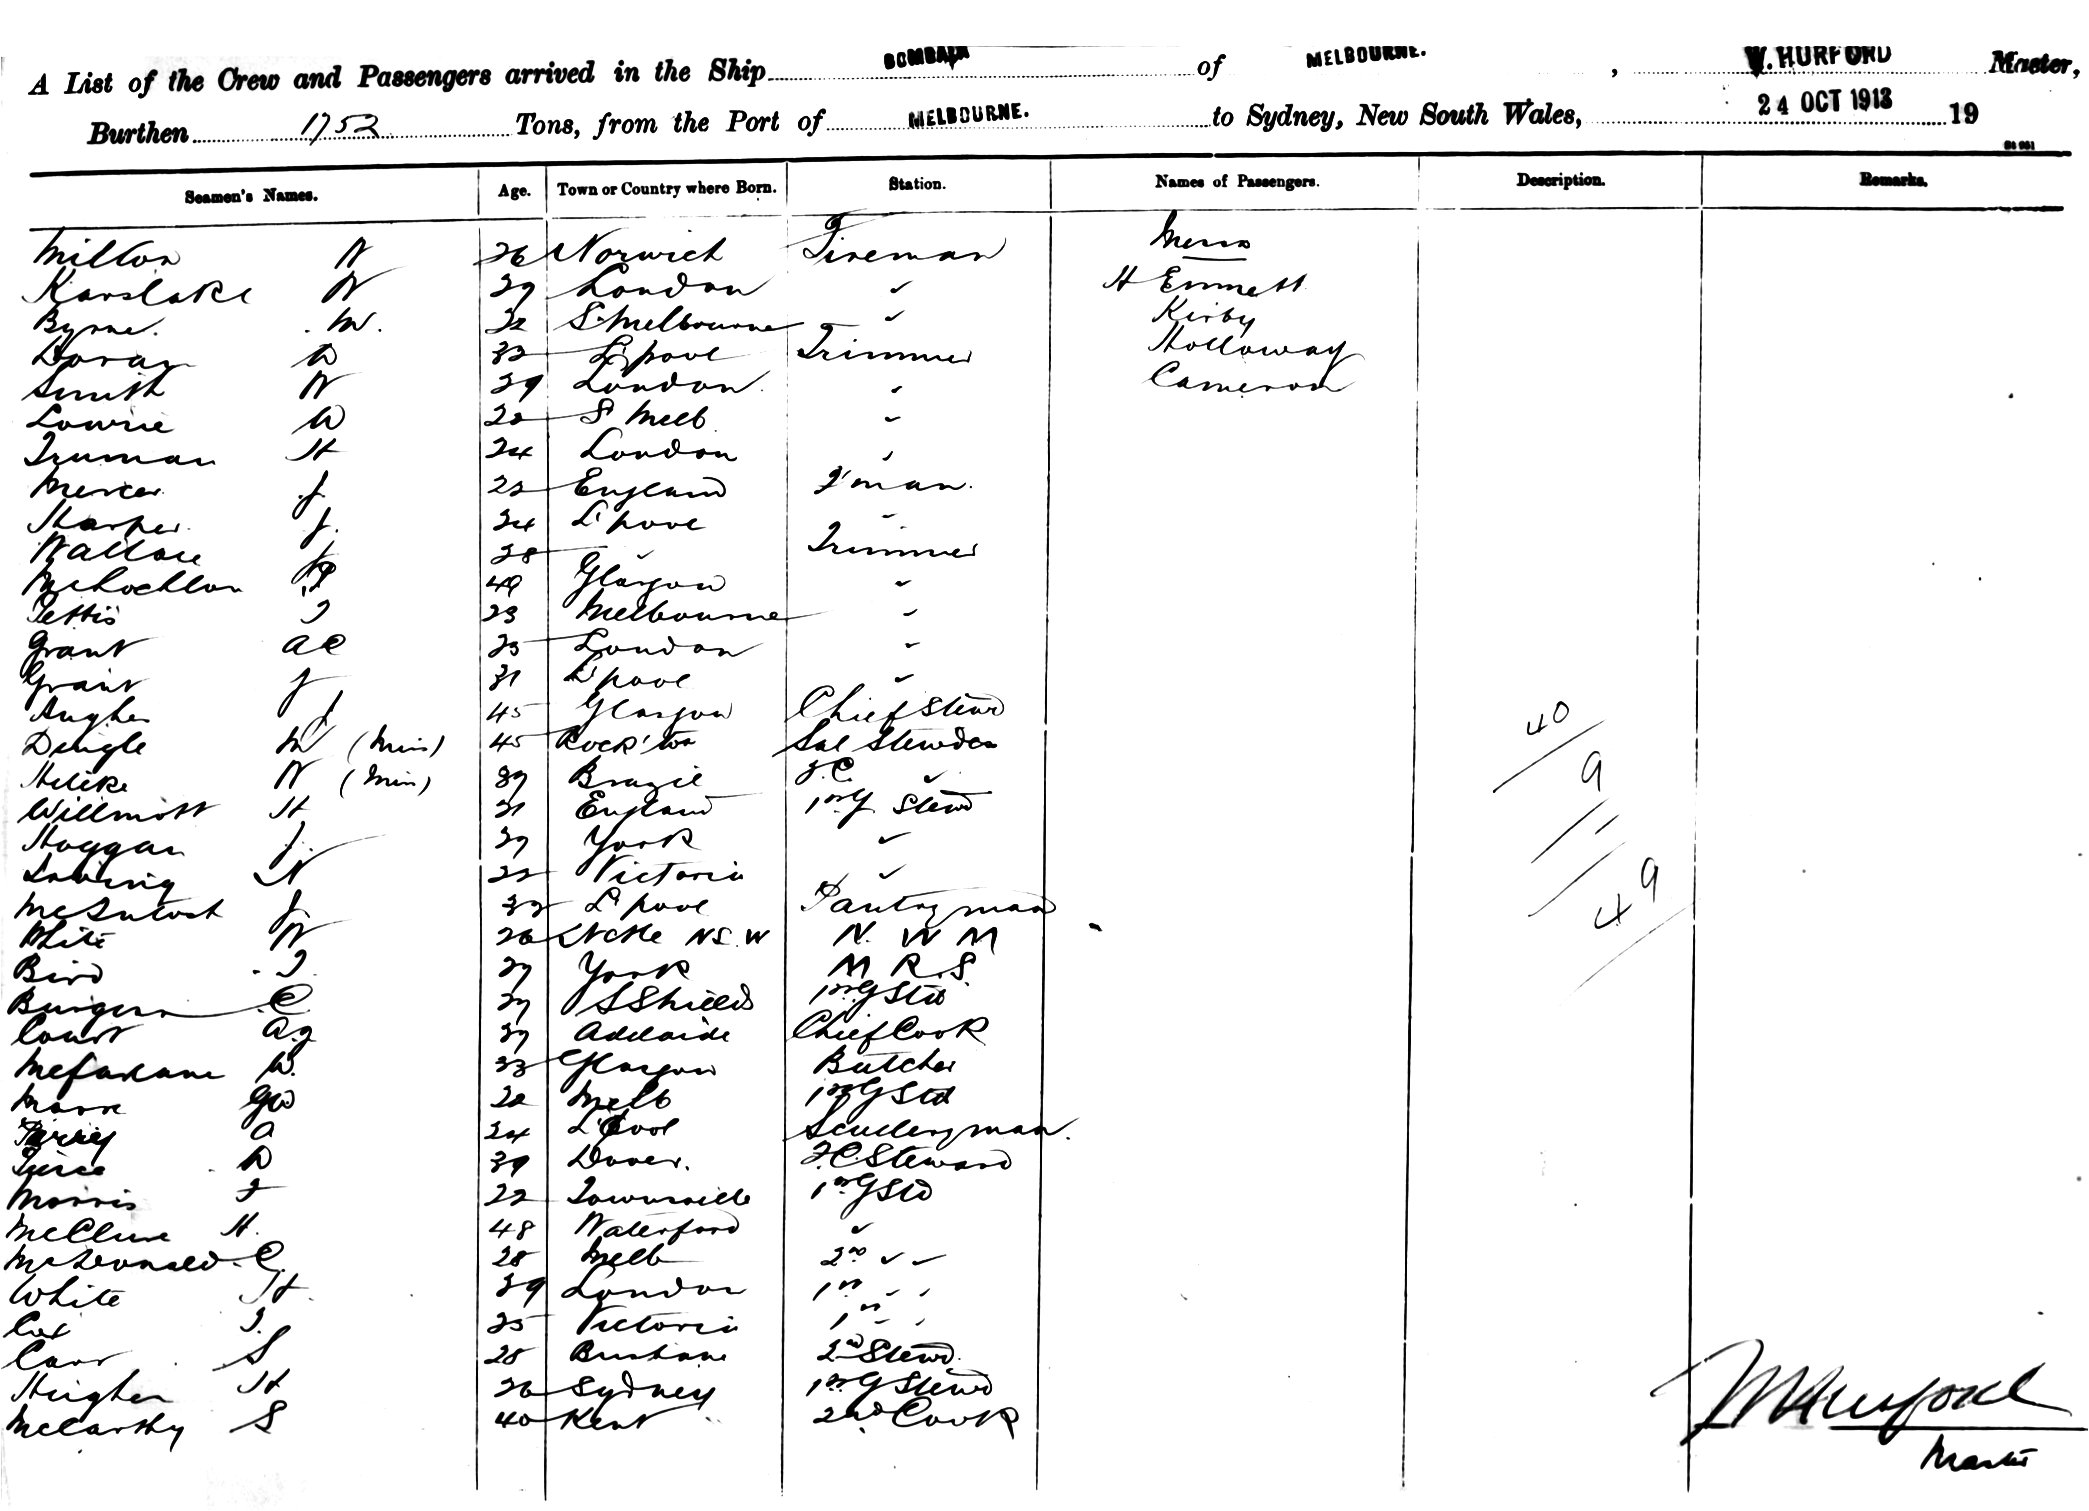 A List of the Crew and Passengers arrived in the Ship BOMBALA of MELBOURNE. , W. HURFORD Master,
Burthen 1752 Tons, from the Port of MELBOURNE. to Sydney, New South Wales, 24 OCT 1913 19
Seamen's Names. Age. Town or Country where Born. Station. Names of Passengers. Description. Remarks.
Milton W 26 Norwich Fireman Messrs
Karslake W 29 London ✓ H Emmett
Byrne. M. 32 S. Melbourne ✓ Kirby
Doran D 33 L'pool Trimmer Holloway
Smith W 29 London. ✓ Cameron
Lowrie W 22 S Melb ✓
Truman H 24 London ✓
Mercer J 22 England F'man.
Harper J. 24 L'pool ✓
Wallace J 28 ✓ Trimmer
McLochlan P 49 Glasgow ✓
Pettis T 23 Melbourne ✓
Grant AC 23 London ✓
Grant J 31 L'pool ✓
Hughes J 45 Glasgow Chief Stewd
Dingle M (Miss) 45 Rock'ton Sal Stewdess 40
W (Miss) 39 Brazil F.C. ✓ 9
Willmott H 31 England 1st G Stewd
Hoggan J. 29 York ✓
N 22 Victoria ✓ 49
McIntosh J 33 L'pool Pantryman
White W 26 NCtle NS.W N. W M
Bird T. 29 York M R.S.
Burgess C 29 S Shields 1st G Std
Court A.G 39 Adelaide Chief Cook
McFarlane W. 33 Glasgow Butcher
GW 22 Melb 1st G Std
Perry A 24 L'Pool Scullery man.
D 39 Dover. F.C. Steward
Morris F 22 Townsville 1st G Std
McClure H. 48 Waterford ✓
McDonald C. 28 Melb 2nd ✓ ✓
White H. 39 London 1st ✓ ✓
Cox T. 25 Victoria 1st ✓ ✓
Carr S 28 Brisbane 2nd Stewd.
Hughes H 26 Sydney 1st G Stewd
McCarthy S 40 Kent 2nd Cook
W Hurford
Master